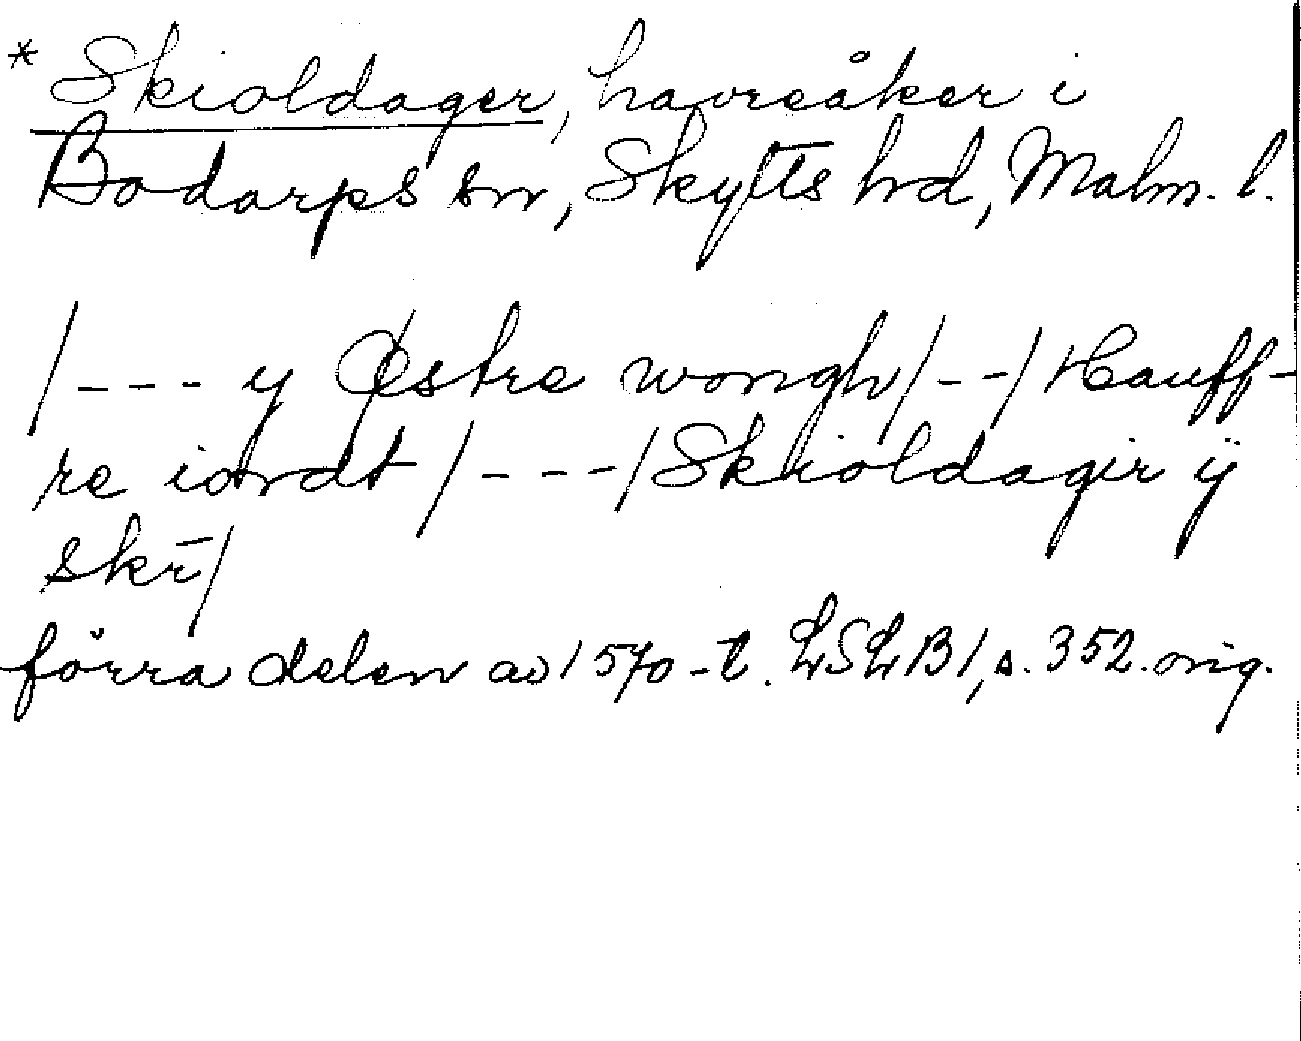 * Skioldager, havreåker i
Bodarps sn, Skytts hd, Malm. l.
/--- y Østre wongh/--/Hauff-
re iordt/---/Skioldagir ÿ
skr̄/
förra delen av 1570-t. LSLB1, s. 352. orig.